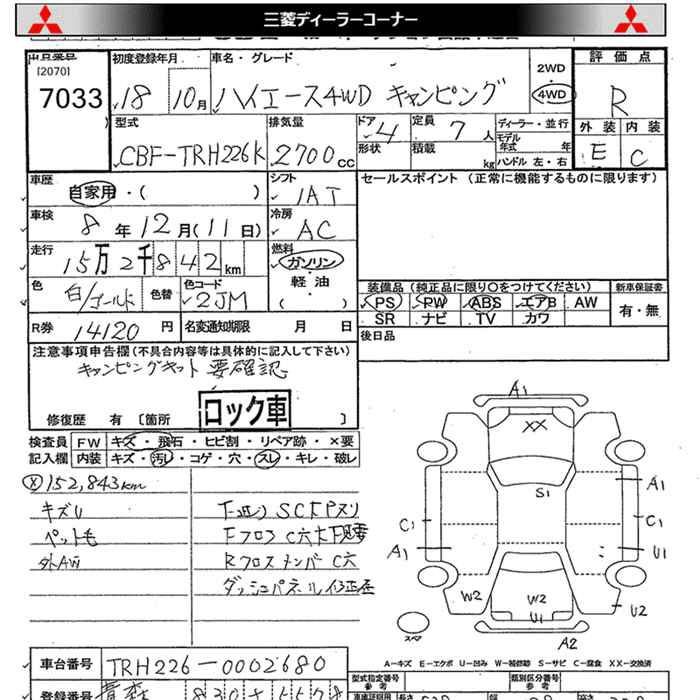 三菱ディーラーコーナー
出品番号 初度登録年月 車名・グレード 2WD 評価点
[2070]
7033 18 10月 ハイエース4WD キャンピング 4WD R
型式 排気量 ドア 4 定員 7 人 ディーラー・並行 外装 内装
CBF-TRH226K 2700cc 形状 積載 kg モデル年式 年 E C
ハンドル 左・右
車歴 自家用・( ) シフト IAT セールスポイント (正常に機能するものに限ります)
車検 8年12月(11日) 冷房 AC
走行 15万2千842km 燃料 ガソリン
軽油
( )
色 白/ゴールド 色替 色コード 2JM 装備品 (純正品に限り○をつけてください) 新車保証書
PS PW ABS エアB AW 有・無
SR ナビ TV カワ
R券 14120円 名変通知期限 月 日 後日品
注意事項申告欄(不具合内容等は具体的に記入して下さい)
キャンピングキット 要確認
ロック車
修復歴 有 [箇所 ]
検査員 FW キズ・飛石・ヒビ割・リペア跡・×要
記入欄 内装 キズ・汚レ・コゲ・穴・スレ・キレ・破レ
152,843km
キズU
ペット毛 Fフロア C穴大
外AW Rクロスメンバー C穴
ダッシュパネル
A1
XX
S1
A1
C1 C1
A1 U1
W2 W2 U2
U1
スペア A2
A-キズ E-エクボ U-凹み W-補修跡 S-サビ C-腐食 XX-交換済
車台番号 TRH226-0002680 型式指定番号 類別区分番号
参考 参考
登録番号 青森 830